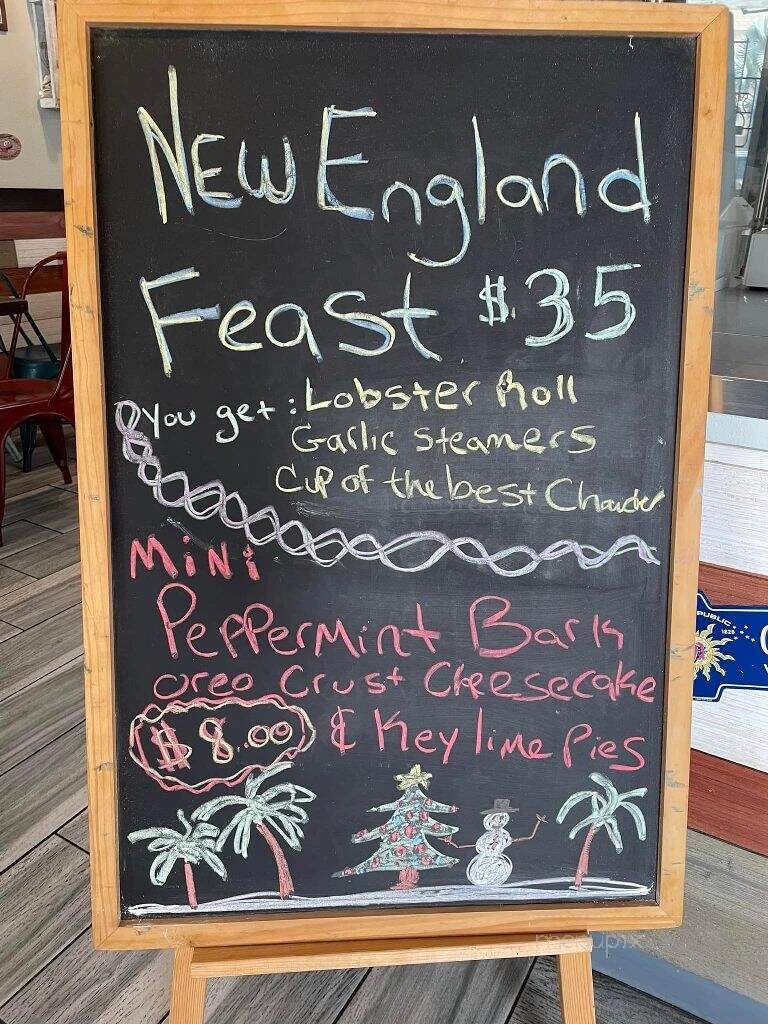 New England
Feast $.35
You get: Lobster Roll
Garlic Steamers
Cup of the best Chowder
Mini
Peppermint Bark
oreo Crust Cheesecake
$8.00 & Key lime Pies
PUBLIC
1828